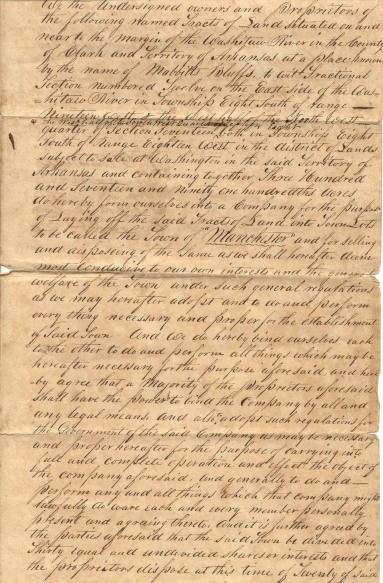 We the Undersigned owners and Proprietors of
the following named Tracts of Land situated on and
near to the margin of the Washitaw River in the County
of Clark and Territory of Arkansas at a place known
by the name of Mabbitts Bluffs, to wit Fractional
Section numbered Twelve on the East side of the Was-
hitaw River in Township Eight South of range
the North West
quarter of Section Seventeen both in Township Eight
South of Range Eighteen West in the district of Lands
subject to sale at Washington in the said Territory of
Arkansas and containing together Three Hundred
and Seventeen and ninety one hundredths acres
do hereby form ourselves into a Company for the purpose
of Laying off the said Tracts of Land into Town Lots
to be called the Town of "Manchester" and for selling
and disposing of the same as we shall hereafter deem
most Conducive to our own interests and the general
welfare of the Town under such general regulations
as we may hereafter adopt and to do and perform
every thing necessary and proper for the establishment
of said Town And we do hereby bind ourselves each
to the other to do and perform all things which may be
hereafter necessary for the purpose aforesaid and here-
by agree that a Majority of the proprietors aforesaid
shall have the power to bind the Company by all and
any legal means, and also adopt such regulations for
the Government of the said Company as may be necessary
and proper hereafter for the purpose of carrying into
full and complete operation and effect the object of
the company aforesaid, and generally to do and
perform any and all things which that company might
lawfully do were each and every member personally
present and agreeing thereto, And it is further agreed by
the parties aforesaid that the said Town be divided into
Thirty equal and undivided shares or interests and that
the proprietors dispose at this time of Twenty of said